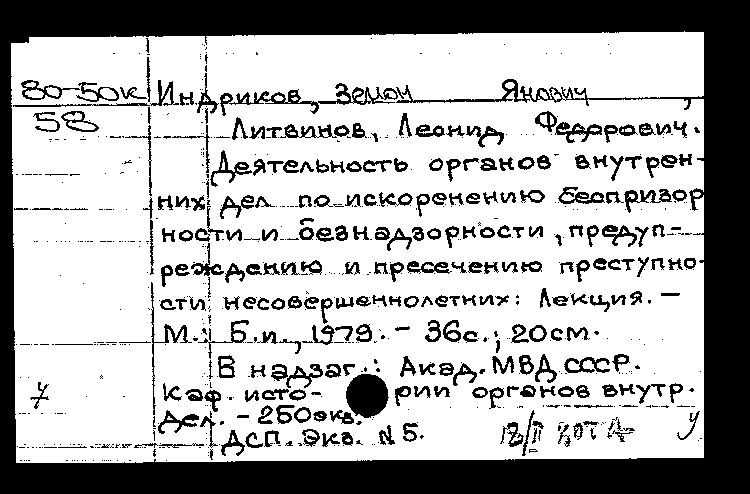 80-50к Индриков, Земон Янович,
58 Литвинов, Леонид Федорович.
Деятельность органов внутрен-
них дел по искоренению беспризор
ности и безнадзорности, предуп-
реждению и пресечению преступно-
сти несовершеннолетних: Лекция. –
М.: Б.и., 1979. – 36с.; 20см.
В надзаг.: Акад. МВД СССР.
Каф. исто- рии органов внутр.
дел. – 250экз.
ДСП. Экз. N 5.
у